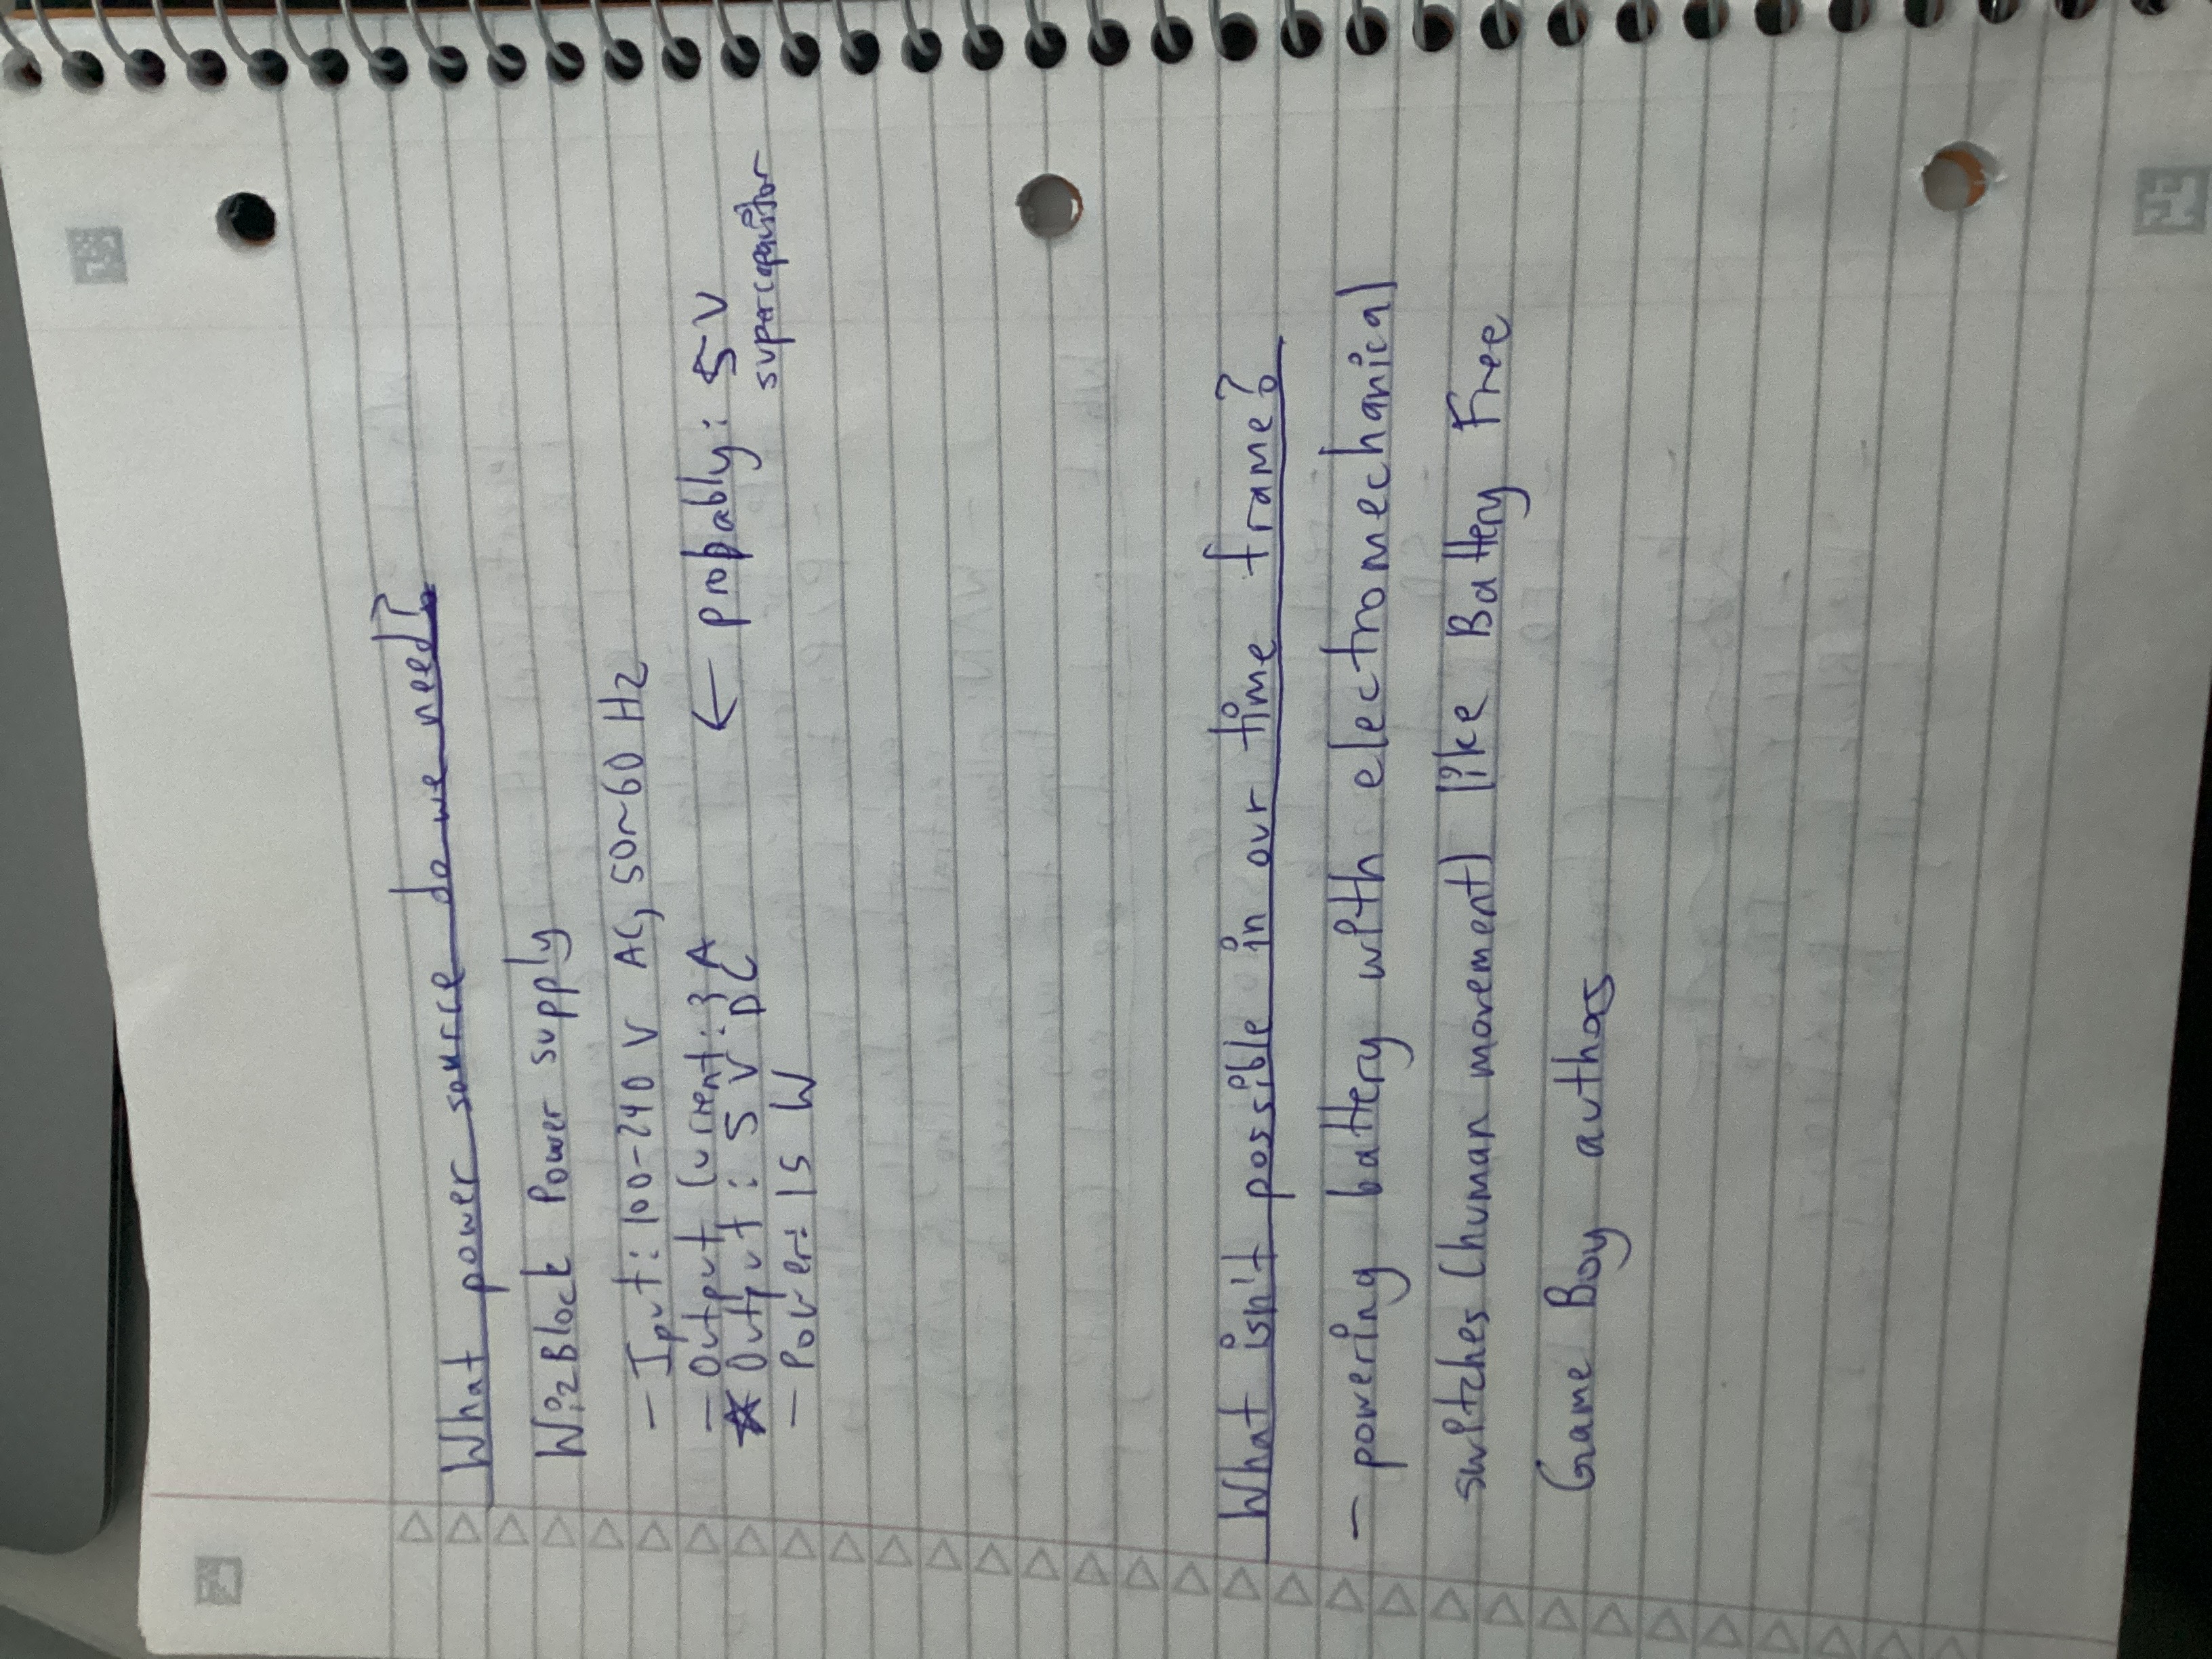 What power source do we need?
WizBlock Power supply
- Iput: 100-240 V AC, 50~60 Hz
- Output Current: 3 A
☆ Output: 5 V DC
← probably: 5 V
supercapacitor
- Power: 15 W
What isn't possible in our time frame?
- powering battery with electromechanical
switches (human movement) like Battery Free
Game Boy authors